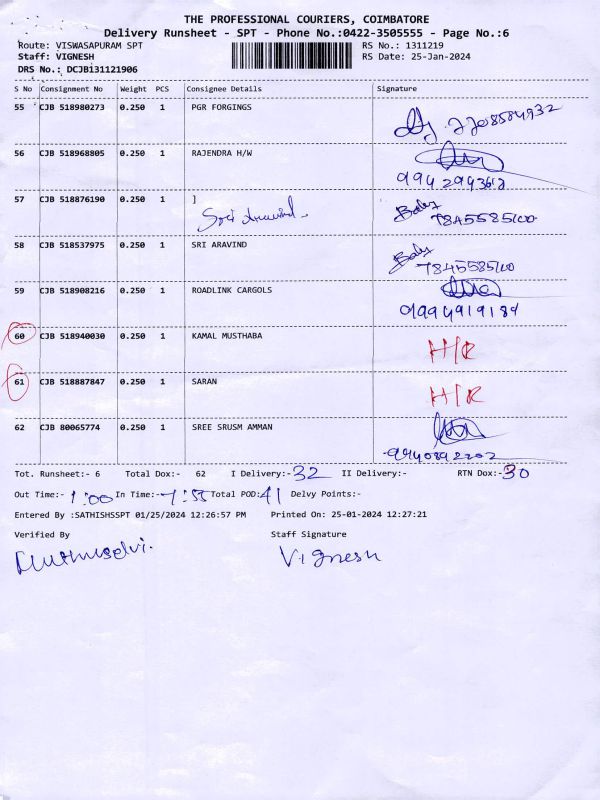 THE PROFESSIONAL COURIERS, COIMBATORE
Delivery Runsheet - SPT - Phone No.:0422-3505555 - Page No.:6
Route: VISWASAPURAM SPT RS No.: 1311219
Staff: VIGNESH RS Date: 25-Jan-2024
DRS No.: DCJBI31121906
S No Consignment No Weight PCS Consignee Details Signature
55 CJB 518980273 0.250 1 PGR FORGINGS
56 CJB 518968805 0.250 1 RAJENDRA H/W
57 CJB 518876190 0.250 1 ]
Sri Aravind Baby 7845585100
58 CJB 518537975 0.250 1 SRI ARAVIND Baby 7845585100
59 CJB 518908216 0.250 1 ROADLINK CARGOLS
9994919184
60 CJB 518940030 0.250 1 KAMAL MUSTHABA H/R
61 CJB 518887847 0.250 1 SARAN H/R
62 CJB 80065774 0.250 1 SREE SRUSM AMMAN
9940892202
Tot. Runsheet:- 6 Total Dox:- 62 I Delivery:- 32 II Delivery:- RTN Dox:- 30
Out Time:- 1:00 In Time:- 7:55 Total POD: 41 Delvy Points:-
Entered By :SATHISHSSPT 01/25/2024 12:26:57 PM Printed On: 25-01-2024 12:27:21
Verified By Staff Signature
Muthuselvi. Vignesh